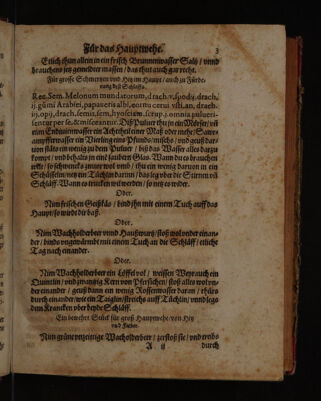 Für das Hauptwehe. 3
Etlich thun allein in ein frisch Brunnenwasser Saltz / vnnd
brauchens jetz gemeldter massen / das thut auch gar recht.
Für grosse Schmertzen vnd Hitz im Haupt / auch zu Fürde-
rung deß Schlaffs.
Rec. Sem. Melonum mundatorum, drach. v. spodij, drach.
ij. gūmi Arabici, papaueris albi, cornu cerui vsti, an. drach.
iij. opij, drach. semis, sem, hyosciam. scrup. j. omnia pulueri-
sentur per se, & misceantur. Diß Puluer thu in ein Mörser /
ein Endiuienwasser ein Achtheil einer Maß oder mehr / Saur-
ampfferwasser ein Vierling eins Pfunds / mische / vnd geuß dar-
von stäts ein wenig zu dem Puluer / biß das Wasser alles darzu
kompt / vnd behalts in eim saubern Glas. Wann du es brauchen
wilt / so schwencks zuuor wol vmb / thu ein wenig daruon in ein
Schüsselin / netz ein Tüchlin darinn / das leg vber die Stirnen vñ
Schläff. Wann es trucken wil werden / so netz es wider.
Oder.
Nim frischen Geißkäs / bind ihn mit einem Tuch auff das
Haupt / so würdt dir baß.
Oder.
Nim Wachholderbeer vnnd Haußwurtz / stoß wol vnder einan-
der / binds vngewärmbt mit einem Tuch an die Schläff / etliche
Tag nach einander.
Oder.
Nim Wachholderbeer ein Löffel vol / weissen Weyrauch ein
Quintlin / vnd zwantzig Kern von Pfersichen / stoß alles vnd vn-
der einander / geuß dann ein wenig Rosenwasser daran / rührs
durch einander / wie ein Taiglin / streichs auff Tüchlin / vnd legs
dem Krancken vber beyde Schläff.
Ein bewehrt Stück für groß Hauptwehe / von Hitz
vnd Fieber.
Nim grüne vnzeitige Wachholderbeer / zerstoß sie / vnd treibs
A ij durch